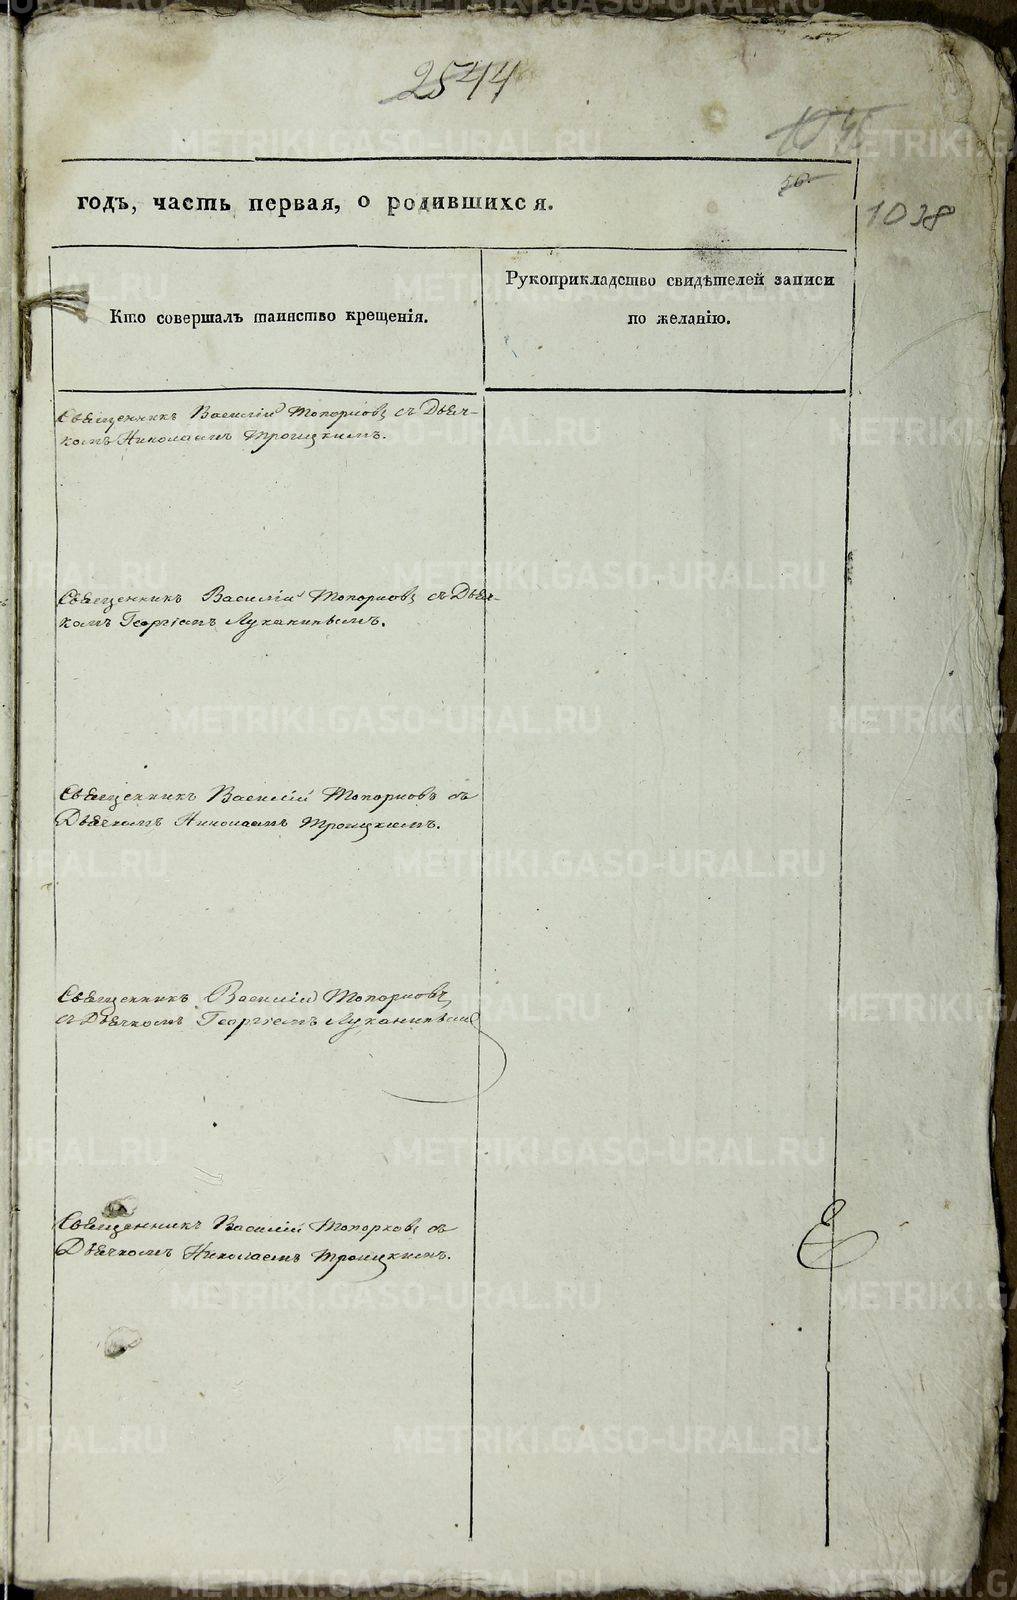 2544
1038
годъ, часть первая, о родившихся.
Кто совершалъ таинство крещенія.
Рукоприкладство свидѣтелей записи
по желанію.
Священникъ Василій Топорковъ съ Дьяч-
комъ Николаемъ Троицкимъ.
Священникъ Василій Топорковъ съ Дьяч-
комъ Георгіемъ Луканинымъ.
Священникъ Василій Топорковъ съ
Дьячкомъ Николаемъ Троицкимъ.
Священникъ Василій Топорковъ
съ Дьячкомъ Георгіемъ Луканинымъ
Священникъ Василій Топорковъ съ
Дьячкомъ Николаемъ Троицкимъ.
METRIKI.GASO-URAL.RU